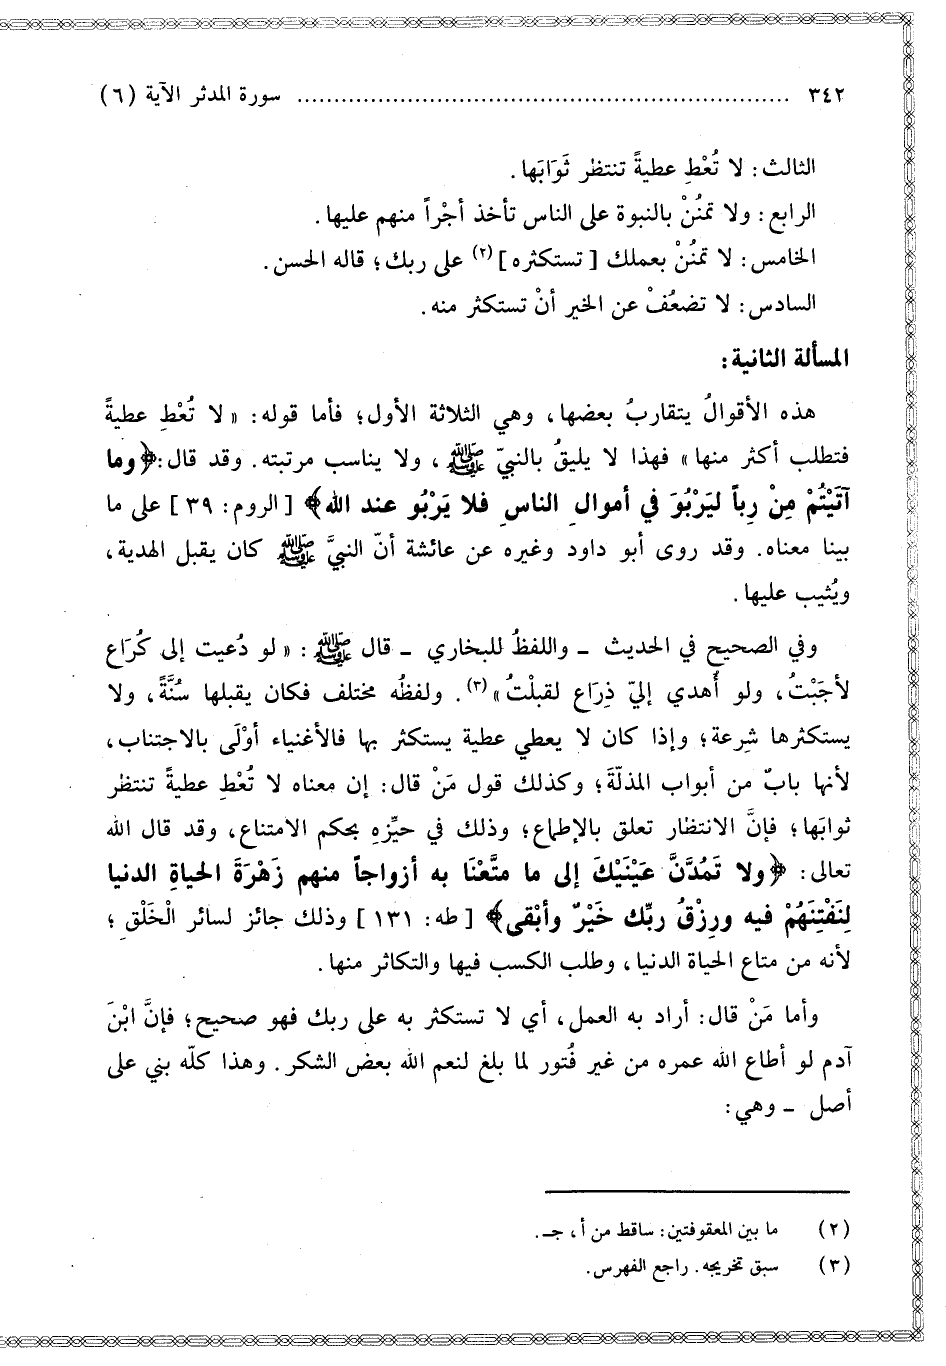 ٣٤٢ .................................................................. سورة المدثر الآية (٦)
الثالث: لا تُعْطِ عطيةً تنتظر ثَوَابَها.
الرابع: ولا تمنُنْ بالنبوة على الناس تأخذ أجْراً منهم عليها.
الخامس: لا تمنُنْ بعملك [تستكثره] (٢) على ربك؛ قاله الحسن.
السادس: لا تضعُفْ عن الخير أنْ تستكثر منه.
المسألة الثانية:
هذه الأقوالُ يتقاربُ بعضها، وهي الثلاثة الأول؛ فأما قوله: «لا تُعْطِ عطيةً
فتطلب أكثر منها» فهذا لا يليقُ بالنبيّ ﷺ، ولا يناسب مرتبته. وقد قال: ﴿وما
آتَيْتُمْ مِنْ رِباً ليَرْبُوَ في أموالِ الناسِ فلا يَرْبُو عند الله﴾ [الروم: ٣٩] على ما
بينا معناه. وقد روى أبو داود وغيره عن عائشة أنّ النبيَّ ﷺ كان يقبل الهدية،
ويُثيب عليها.
وفي الصحيح في الحديث ـ واللفظُ للبخاري ـ قال ﷺ: «لو دُعيت إلى كُرَاع
لأجَبْتُ، ولو أُهدي إليّ ذِرَاع لقبلْتُ» (٣). ولفظُه مختلف فكان يقبلها سُنَّةً، ولا
يستكثرها شِرعة؛ وإذا كان لا يعطي عطية يستكثر بها فالأغنياء أوْلَى بالاجتناب،
لأنها بابٌ من أبواب المذلّةَ؛ وكذلك قول مَنْ قال: إن معناه لا تُعْطِ عطيةً تنتظر
ثوابَها؛ فإنَّ الانتظار تعلق بالإطماع؛ وذلك في حيِّزِهِ بحكم الامتناع، وقد قال الله
تعالى: ﴿ولا تَمُدَّنَّ عَيْنَيْكَ إلى ما متَّعْنَا به أزواجاً منهم زَهْرَةَ الحياةِ الدنيا
لِنَفْتِنَهُمْ فيه ورِزْقُ ربِّك خَيْرٌ وأبْقى﴾ [طه: ١٣١] وذلك جائز لسائر الْخَلْقِ؛
لأنه من متاع الحياة الدنيا، وطلب الكسب فيها والتكاثر منها.
وأما مَنْ قال: أراد به العمل، أي لا تستكثر به على ربك فهو صحيح؛ فإنَّ ابْنَ
آدم لو أطاع الله عمره من غير فُتور لما بلغ لنعم الله بعض الشكر. وهذا كلّه بني على
أصل ـ وهي:
(٢) ما بين المعقوفتين: ساقط من أ، جـ.
(٣) سبق تخريجه. راجع الفهرس.